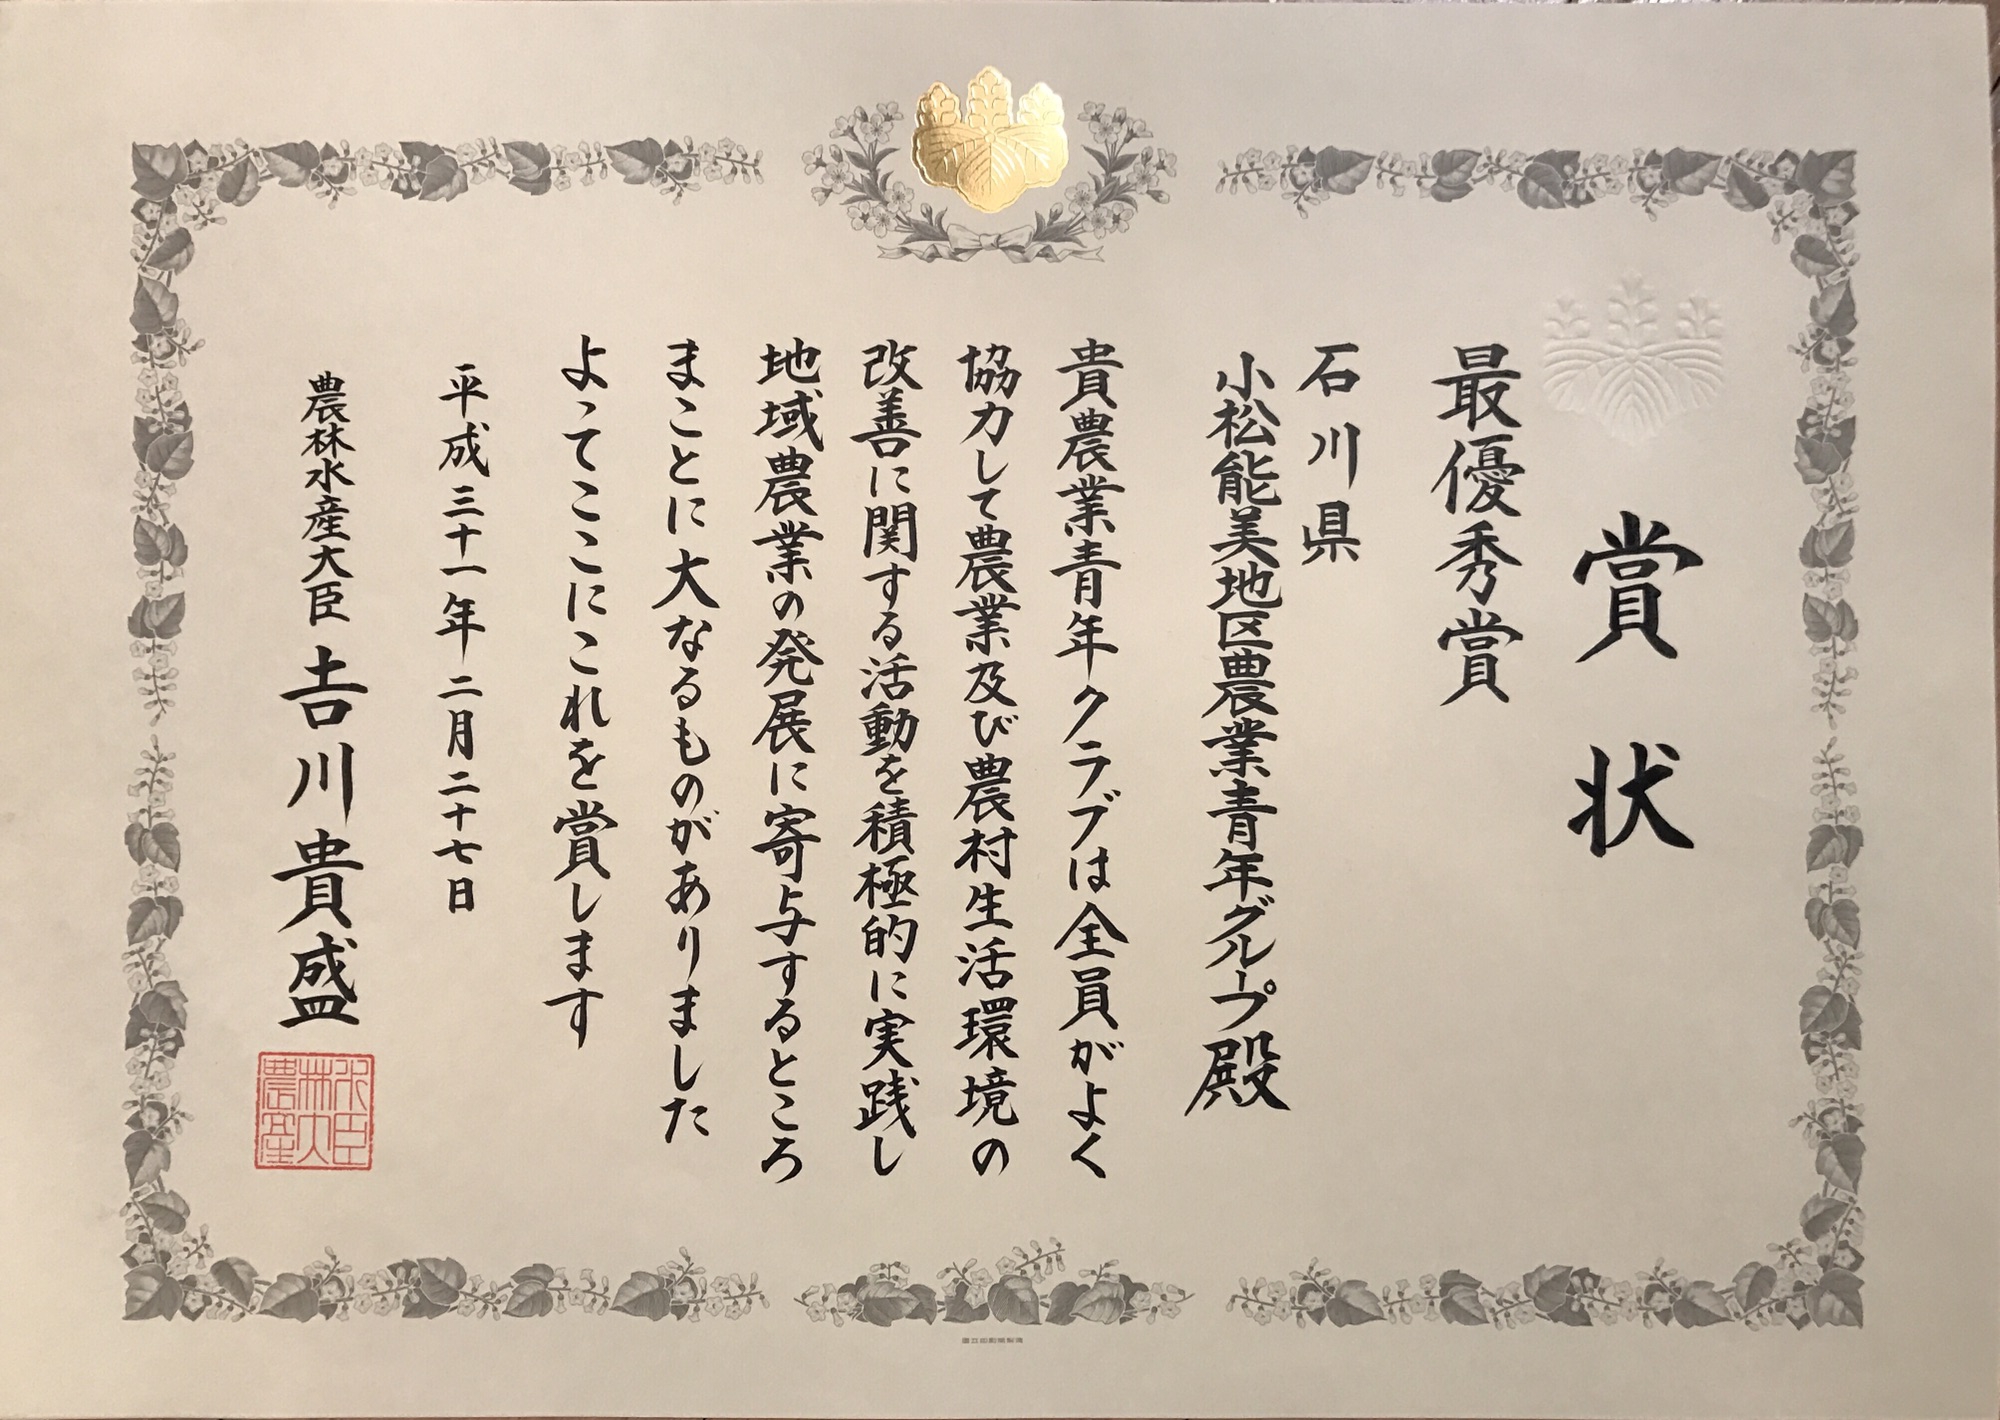 賞状
最優秀賞
石川県
小松能美地区農業青年グループ殿
貴農業青年クラブは全員がよく
協力して農業及び農村生活環境の
改善に関する活動を積極的に実践し
地域農業の発展に寄与するところ
まことに大なるものがありました
よってここにこれを賞します
平成三十一年二月二十七日
農林水産大臣 𠮷川貴盛
農林水産大臣